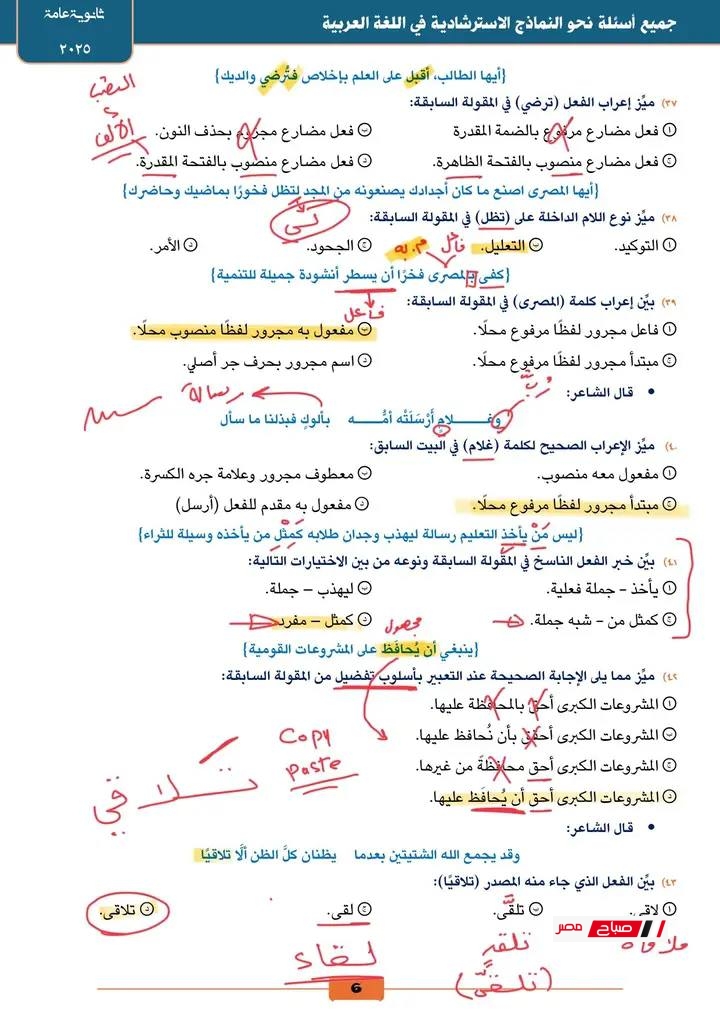 جميع أسئلة نحو النماذج الاسترشادية في اللغة العربية
ثانوية عامة
٢٠٢٥
{أيها الطالب، أقبل على العلم بإخلاص فتُرضي والديك}
النصب
الألف
(٣٧ ميِّز إعراب الفعل (ترضي) في المقولة السابقة:
أ فعل مضارع مرفوع بالضمة المقدرة
ب فعل مضارع مجزوم بحذف النون.
ج فعل مضارع منصوب بالفتحة الظاهرة
د فعل مضارع منصوب بالفتحة المقدرة.
{أيها المصرى اصنع ما كان أجدادك يصنعونه من المجد لتظل فخورًا بماضيك وحاضرك}
كى
(٣٨ ميِّز نوع اللام الداخلة على (تظل) في المقولة السابقة:
أ التوكيد.
ب التعليل.
ج الجحود.
د الأمر.
فاعل
م. به
{كفى بالمصرى فخرًا أن يسطر أنشودة جميلة للتنمية}
فاعل
(٣٩ بيِّن إعراب كلمة (المصرى) في المقولة السابقة:
أ فاعل مجرور لفظًا مرفوع محلًا.
ب مفعول به مجرور لفظًا منصوب محلًا.
ج مبتدأ مجرور لفظًا مرفوع محلًا.
د اسم مجرور بحرف جر أصلي.
• قال الشاعر:
رُبَّ
رسالة
وغــلامٍ أَرْسَلَتْه أمُّــه بألوكٍ فبذلنا ما سأل
(٤٠ ميِّز الإعراب الصحيح لكلمة (غلام) في البيت السابق:
أ مفعول معه منصوب.
ب معطوف مجرور وعلامة جره الكسرة.
ج مبتدأ مجرور لفظًا مرفوع محلًا.
د مفعول به مقدم للفعل (أرسل)
{ليس مَنْ يأخذ التعليم رسالة ليهذب وجدان طلابه كَمِثْلِ من يأخذه وسيلة للثراء}
(٤١ بيِّن خبر الفعل الناسخ في المقولة السابقة ونوعه من بين الاختيارات التالية:
أ يأخذ – جملة فعلية.
ب ليهذب – جملة.
ج كمثل من – شبه جملة.
د كمثل – مفرد
مجهول
{ينبغي أن يُحافَظ على المشروعات القومية}
(٤٢ ميِّز مما يلى الإجابة الصحيحة عند التعبير بأسلوب تفضيل من المقولة السابقة:
أ المشروعات الكبرى أحق بالمحافظة عليها.
ب المشروعات الكبرى أحقق بأن نُحافظ عليها.
ج المشروعات الكبرى أحق محافظةً من غيرها.
د المشروعات الكبرى أحق أن يُحافَظ عليها.
Copy
paste
• قال الشاعر:
وقد يجمع الله الشتيتين بعدما يظنان كلَّ الظن ألَّا تلاقيًا
(٤٣ بيِّن الفعل الذي جاء منه المصدر (تلاقيًا):
أ لاقى.
ب تلقَّى.
ج لقى.
د تلاقى.
ملاقاة
لقاء
(تلقّى)
صباح مصر
6